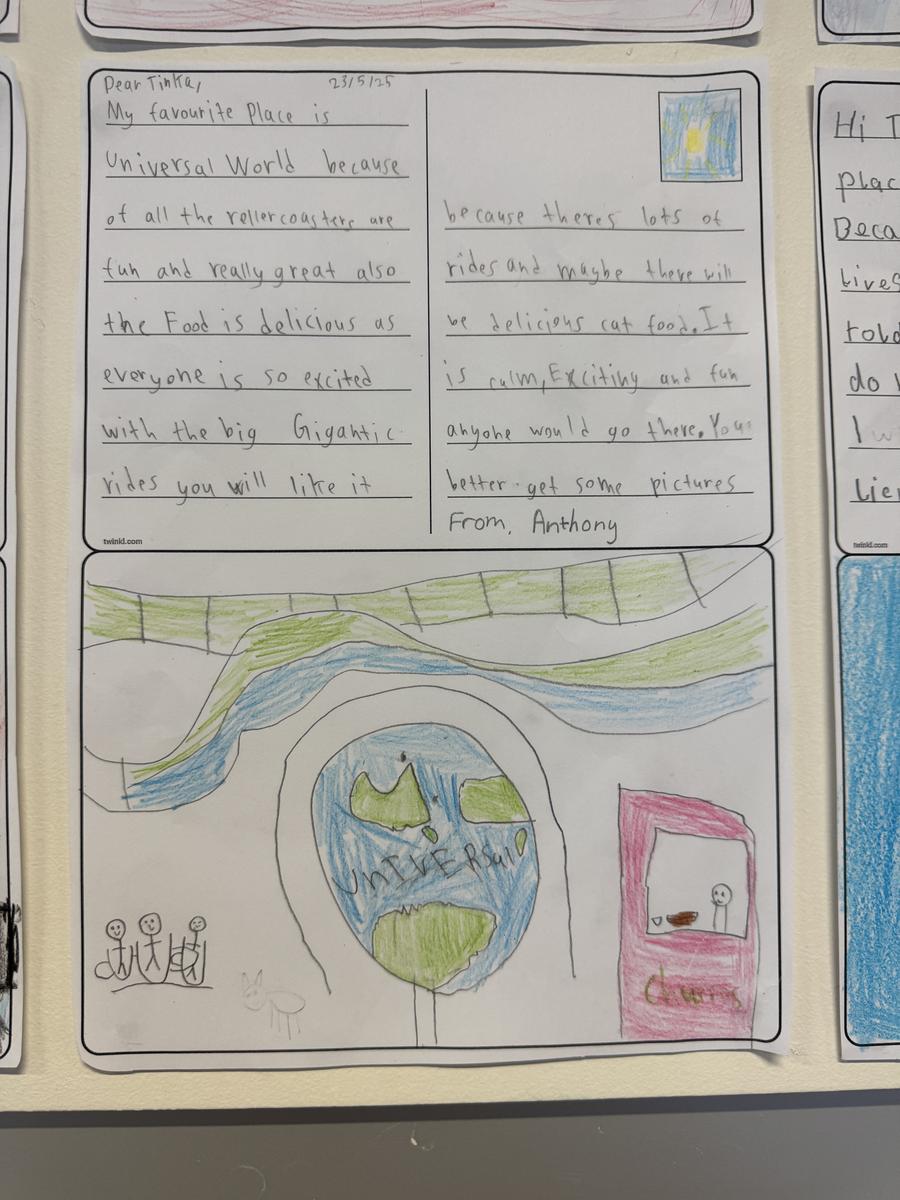 Dear Tinka,
23/5/25
My favourite Place is
Universal World because
of all the rellercoasters are
fun and really great also
the Food is delicious as
everyone is so excited
with the big Gigantic
rides you will like it
because theres lots of
rides and maybe there will
be delicious cat food. It
is calm, Exciting and fun
anyone would go there. You
better get some pictures
From, Anthony
twinkl.com
UnIVERSal
Hi T
plac
Beca
Lives
told
do
I w
Lie
twinkl.com